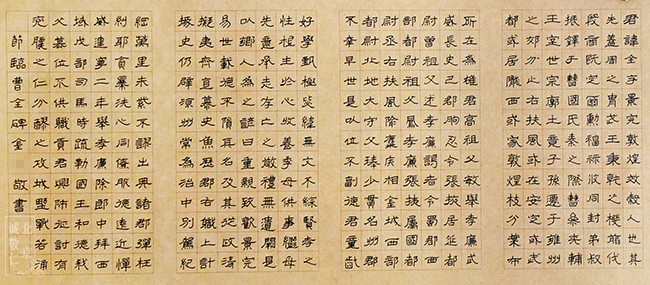 君諱全字景完敦煌效穀人也其
先蓋周之胄武王秉乾之機翦伐
殷商既定爾勛福祿攸同封弟叔
振鐸于曹國氏秦之際曹夾輔
王室世宗廓土竟子孫遷于雍州
之郊分止右扶風或在安定或武
都或居隴西或家敦煌枝分葉布
所在為雄君高祖父敏舉孝廉武
威長史巴郡朐忍令張掖居延都
尉曾祖父述孝廉謁者蜀郡西
部都尉祖父鳳孝廉張掖屬國都
尉丞右扶風隃麋侯相金城西部
都尉北地大守父琫少貫名州郡
不幸早世是以位不副德君童齔
好學甄極毖緯無文不綜賢孝之
性根生於心收養季母供事繼母
先意承志存亡之敬禮無遺闕是
以鄉人為之諺曰重親致歡景完
易世載德不隕其名及其從政清
擬夷齊直慕史魚歷郡右職上計
掾史仍辟涼州常為治中別駕紀
綱萬里朱紫不謬出典諸郡彈枉
糾邪貪暴洗心同僚服德遠近憚
威建寧二年舉孝廉除郎中拜西
域戊部司馬時疏勒國王和德弒
父篡位不供職貢君興師征討有
兗膿之仁分醪之攻城野戰若涌
節臨曹全碑金 敬書